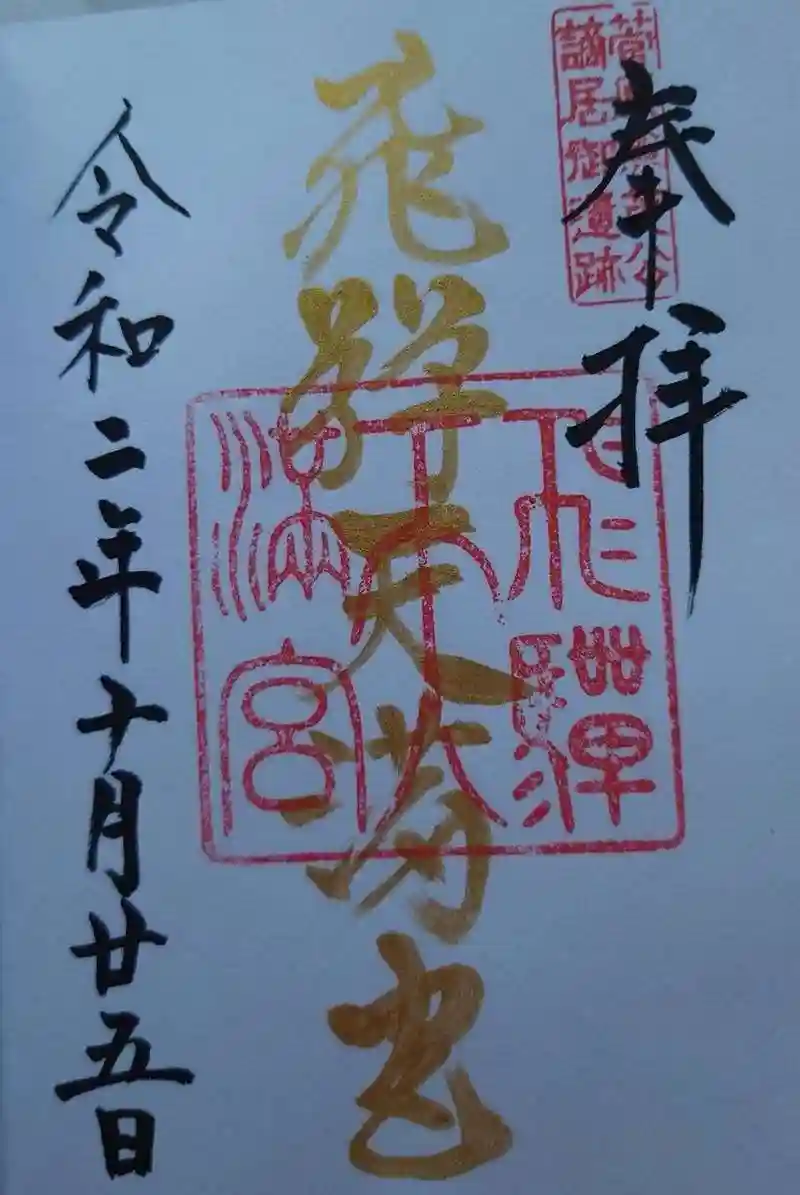 奉拝
菅原兼茂公
謫居御遺跡
飛騨天満宮
飛驒
天
満宮
令和二年十月廿五日